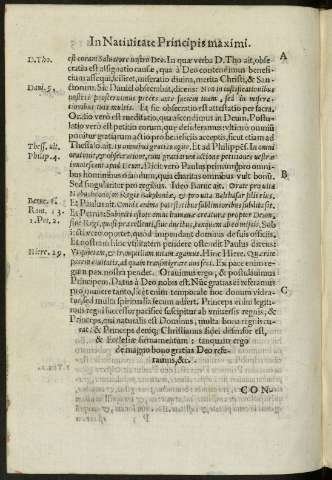 In Natiuitate Principis maximi.
D. Tho. est coram Saluatore nostro Deo. In quæ verba D. Tho ait, obse- A
cratio est assignatio causæ, qua à Deo contendimus benefi-
cium assequi, scilicet, miseratio diuina, merita Christi, & San-
Dani. 9. ctorum. Sic Daniel obsecrabat, dicens: Non in iustificationibus
nostris prosternimus preces ante faciem tuam, sed in misera-
tionibus tuis multis. Et sic obsecratio est attestatio per sacra.
Oratio verò est meditatio, qua ascendimus in Deum. Postu-
latio verò est petitio eorum, quæ desideramus: vltimo omnium
ponitur gratiarum actio pro beneficijs acceptis, sicut etiam ad
Thess. vlt. Thessalo. ait. In omnibus gratias agite. Et ad Philippés. In omni
Philip. 4. oratione, & obsecratione, cum gratiarum actione petitiones vestræ in-
innotescant apud Deum. Dicit verò Paulus primùm pro omni-
bus hominibus orandum, quia charitas omnibus vult bonum. B
Sed singulariter pro regibus. Ideo Baruc ait. Orate pro vita
Nabuchodonosor Regis Babylonis, & pro vita Balthasar filij eius.
Baruc. 1. Et Paulus ait. Omnis anima potestatibus sublimioribus subdita sit.
Rom. 13. Et Petrus. Subiecti estote omni humanæ creaturæ propter Deum,
1. Pet. 2. siue Regi, quasi præcellenti, siue ducibus, tanquam ab eo missis. Sub-
iecti ergo esse oportet, quod sine dubio sit diuinis officijs.
Et nostram hinc vtilitatem pendere ostendit Paulus dicens:
Hiere. 29. Vt quietam, & tranquillam vitam agamus. Hinc Hiere. Quærite
pacem ciuitatis, ad quam transmigrare vos feci. Ex pace enim re-
gum pax nostra pendet. Orauimus ergo, & postulauimus
Principem. Datus à Deo nobis est. Nũc gratias ei referamus
pro munere tanto, licèt enim temporale hoc donum videa- C
tur, sed multa spiritualia secum adfert. Princeps enim legiti-
mus regij successor pacifice suscipitur ab vniuersis regnis, &
Princeps, qui naturalis est Dominus, multa bona regnis cu-
rat: & Princeps deniq; Christianus fidei defensor est,
& Ecclesiæ firmamentum: tanquam ergo
de magno bono gratias Deo refe-
ramus, &c.
CON-